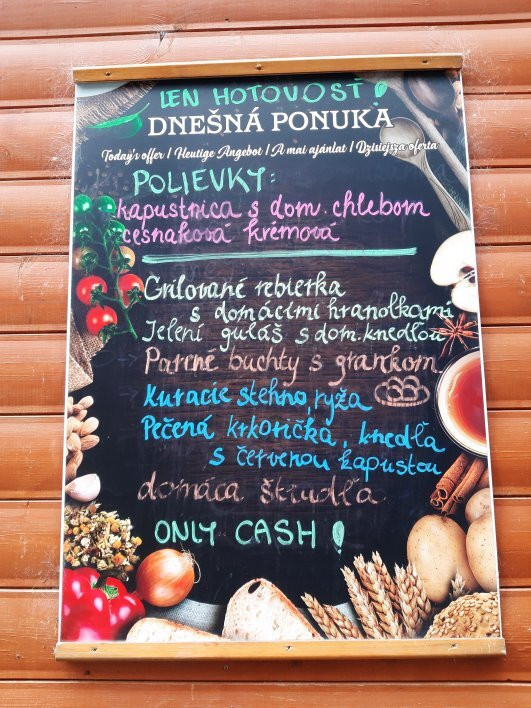 LEN HOTOVOSŤ!
DNEŠNÁ PONUKA
Today's offer / Heutige Angebot / A mai ajánlat / Dzisiejsza oferta
POLIEVKY:
kapustnica s dom. chlebom
cesnaková krémová
Grilované rebierka
s domácimi hranolkami
Jelení guláš s dom. knedľou
Parené buchty s grankom
Kuracie stehno, ryža
Pečená krkovička, knedľa
s červenou kapustou
domáca štrudľa
ONLY CASH!